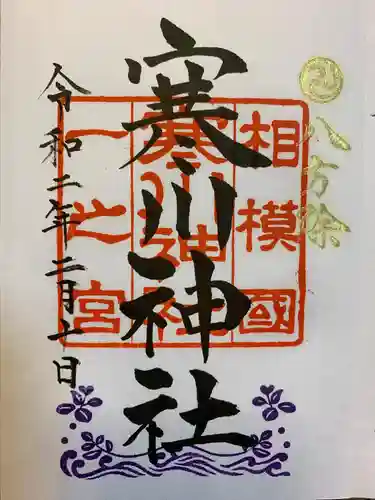 八方除
相模國
寒川神社
寒川神社
一之宮
令和二年二月十日